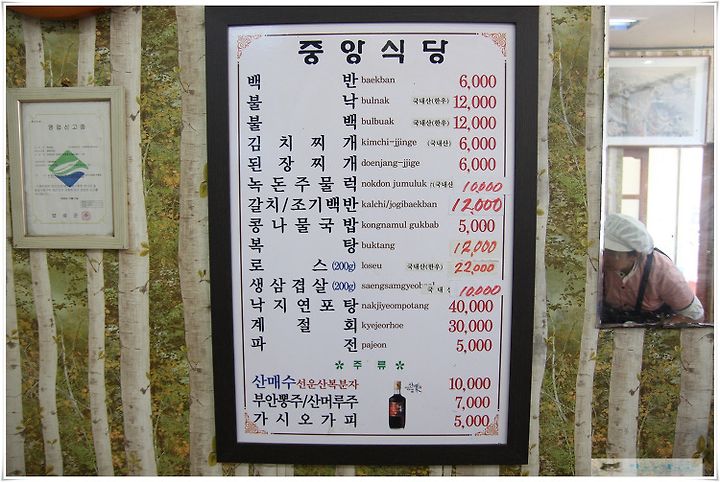 중앙식당
백반 baekban 6,000
불낙 bulnak 국내산(한우) 12,000
불백 bulbuak 국내산(한우) 12,000
김치찌개 kimchi-jjinge (국내산) 6,000
된장찌개 doenjang-jjige 6,000
녹돈주물럭 nokdon jumuluk (국내산 10,000
갈치/조기백반 kalchi/jogibaekban 12,000
콩나물국밥 kongnamul gukbab 5,000
복탕 buktang 12,000
로스 (200g) loseu 국내산(한우) 22,000
생삼겹살 (200g) saengsamgyeol 국내 10,000
낙지연포탕 nakjiyeompotang 40,000
계절회 kyejeorhoe 30,000
파전 pajeon 5,000
주류
산매수 선운산복분자 10,000
부안뽕주/산머루주 7,000
가시오가피 5,000
영업신고증